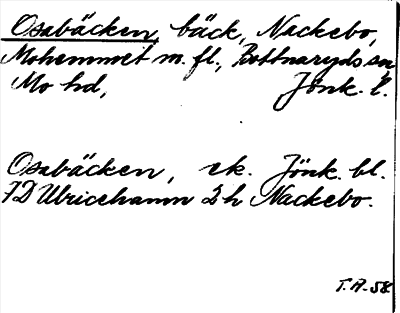 Osabäcken, bäck, Nackebo,
Mohemmet m. fl., Bottnaryds sn
Mo hd, Jönk. l.
Osabäcken, ek. Jönk. bl.
7D Ulricehamn 2h Nackebo.
T.A-58